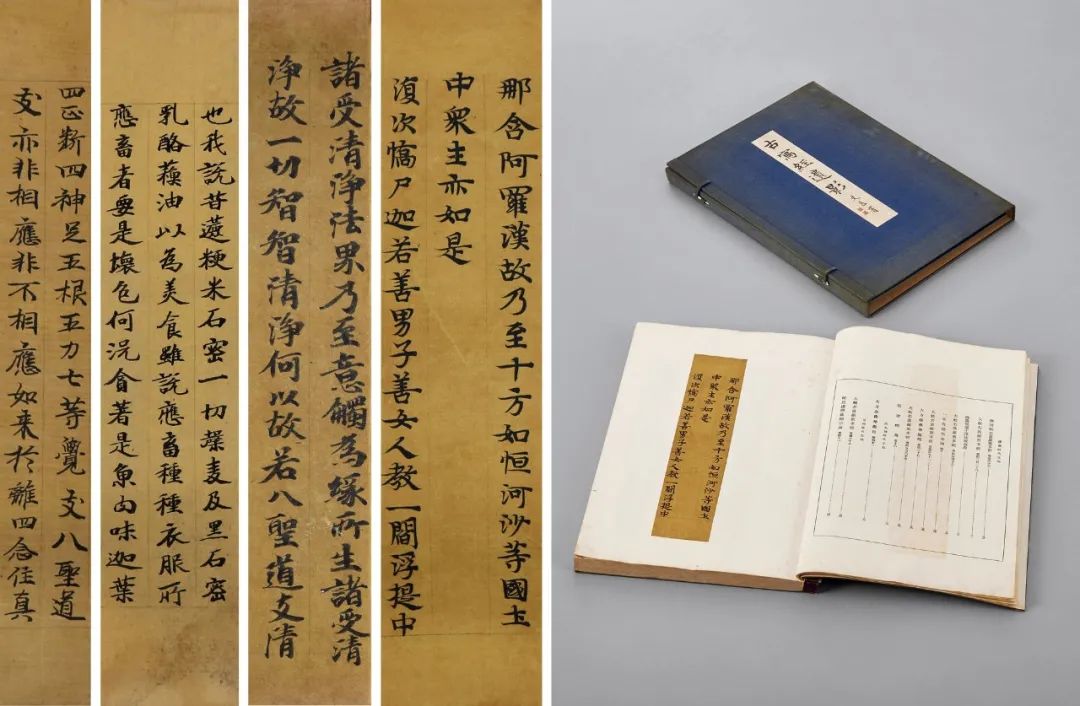 那含阿羅漢故乃至十方如恒河沙等國土
中衆生亦如是
復次憍尸迦若善男子善女人教一閻浮提中
諸受清淨法界乃至意觸為緣所生諸受清
淨故一切智智清淨何以故若八聖道支清
也我說苷蔗粳米石蜜一切穬麦及黑石蜜
乳酪蘓油以為美食雖說應畜種種衣服所
應畜者要是壞色何況貪著是魚肉味迦葉
四正斷四神足五根五力七等覺支八聖道
支亦非相應非不相應如来於離四念住真
古寫經遺影
那含阿羅漢故乃至十方如恒河沙等國土
中衆生亦如是
復次憍尸迦若善男子善女人教一閻浮提中